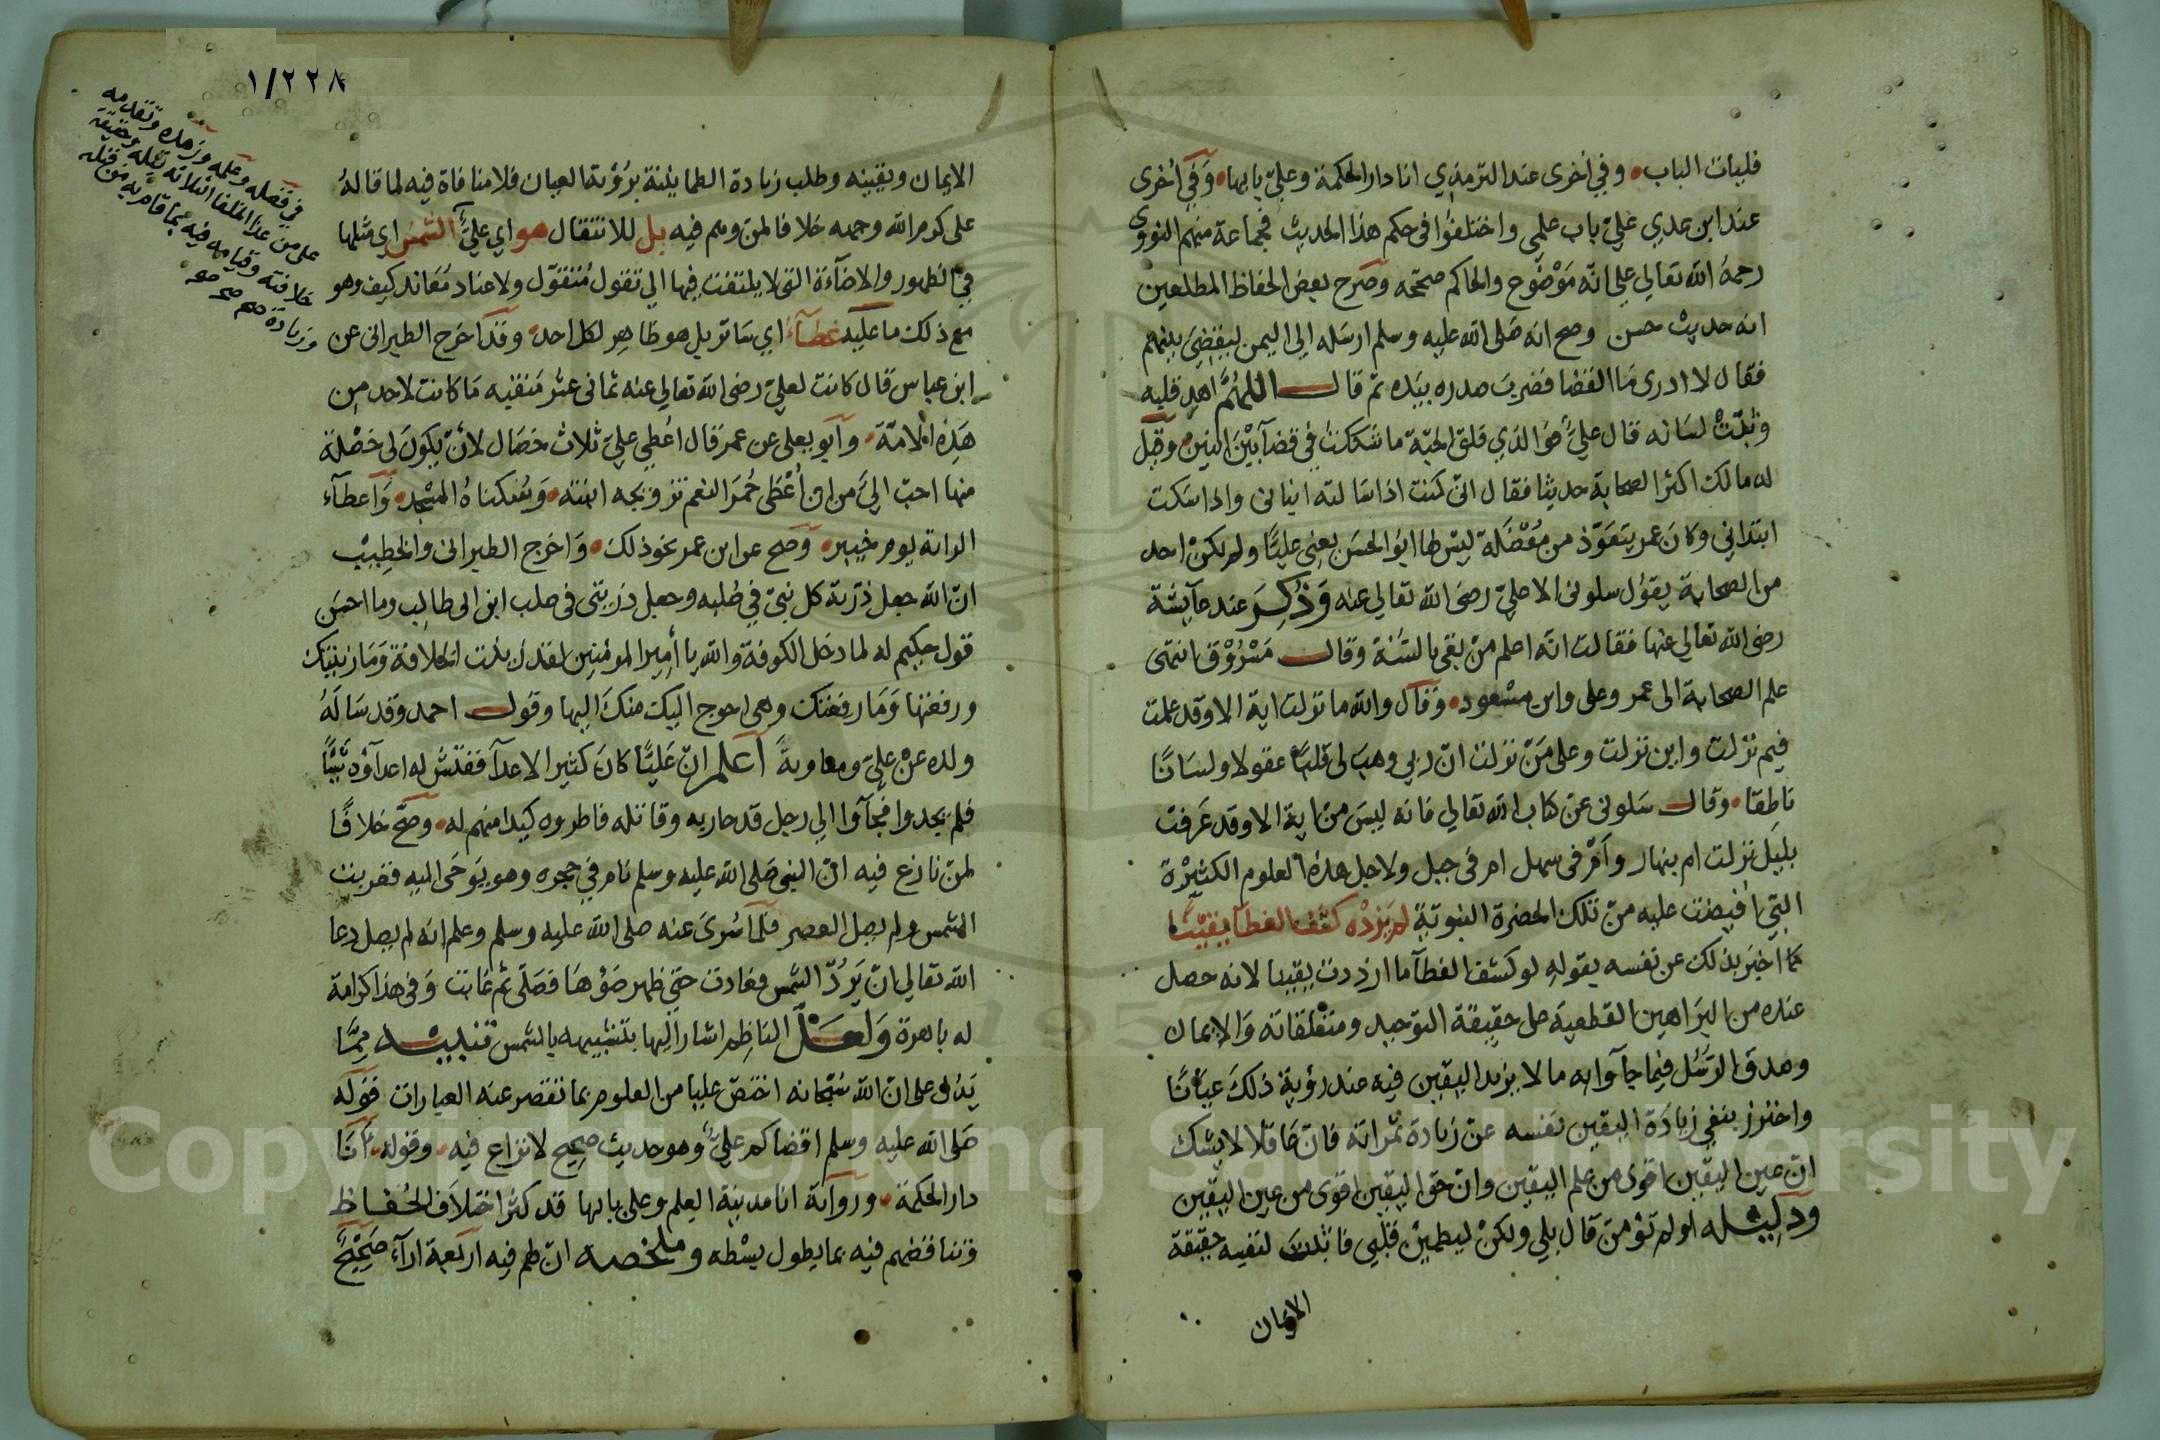 فليات الباب وفي أخرى عند الترمذي انا دار الحكمة وعليّ بابها وفي أخرى
عند ابن عدي عليّ باب علمي واختلفوا في حكم هذا الحديث فجماعة منهم النووي
رحمه الله تعالي علي انه موضوع والحاكم صححه وصرح بعض الحفاظ المطلعين
انه حديث حسن وصح انه صلى الله عليه وسلم ارسله الي اليمن ليقضي بينهم
فقال لا ادرى ما القضا فضرب صدره بيده ثم قال اللهم اهد قلبه
وثبّت لسانه قال عليّ فو الذي فلق الحبة ما شككت في قضآ بين اثنين وقيل
له مالك اكثر الصحابة حديثا فقال اني كنت اذا سالته انباني واذا سكت
ابتداني وكان عمر يتعوّذ من معضلة ليس لها ابو الحسن يعني عليّا ولم يكن احد
من الصحابة يقول سلوني الا عليّ رضي الله تعالي عنه وذكر عند عآيشة
رضي الله تعالي عنها فقالت انه اعلم من بقي بالسنة وقال مسروق انتهى
علم الصحابة الى عمر وعلى وابن مسعود وقال والله ما نزلت اية الا وقد علمت
فيم نزلت واين نزلت وعلى من نزلت ان ربي وهب لي قلبا عقولا ولسانا
ناطقا وقال سلوني عن كتاب الله تعالي فانه ليس من اية الا وقد عرفت
بليل نزلت ام بنهار وام في سهل ام في جبل ولاجل هذه العلوم الكثيرة
التي افيضت عليه من تلك الحضرة النبوية لم يزده كشف الغطآ يقينا
كما اخبر بذلك عن نفسه بقوله لو كشف الغطآ ما ازددت يقينا لانه حصل
عنده من البراهين القطعية على حقيقة التوحيد ومتعلقاته والايمان
وصدق الرسل فيما جآوا به ما لا يزيد اليقين فيه عند رؤية ذلك عيانا
واحترز بنفي زيادة اليقين نفسه عن زيادة ثمراته فان عاقلا لا يشك
ان عين اليقين اقوى من علم اليقين وان حق اليقين اقوى من عين اليقين
ودليله اولم تؤمن قال بلي ولكن ليطمئن قلبي فاثبت لنفسه حقيقة
الايمان
١/٢٢٨
في فضله وعلمه وزهده وتقدمه
على من عدا الخلفا الثلاثة قبله وحقيقة
خلافته وقيامه فيه بما قام به من قبله
وزيادة صح صح
الايمان ويقينه وطلب زيادة الطمانينة برؤية العيان فلا منافاة فيه لما قاله
على كرم الله وجهه خلافا لمن وهم فيه بل للانتقال هو اي عليّ الشمس اي مثلها
في الظهور والاضآءة التي لا يلتفت فيها الي تقول متقوّل ولا عناد معاند كيف وهو
مع ذلك ما عليه غطآء اي ساتر بل هو ظاهر لكل احد وقد اخرج الطبراني عن
ابن عباس قال كانت لعلي رضي الله تعالي عنه ثماني عشر منقبة ما كانت لاحد من
هذه الامّة وابو يعلى عن عمر قال اعطي عليّ ثلاث خصال لأن يكون لي خصلة
منها احب اليّ من ان أعطى حمر النعم تزويجه ابنته وسكناه المسجد واعطآء
الراية يوم خيبر وصح عن ابن عمر نحو ذلك واخرج الطبراني والخطيب
ان الله جعل ذرية كل نبيّ في صلبه وجعل ذريتي في صلب ابن ابي طالب وما احسن
قول حكيم له لما دخل الكوفة والله يا أمير المؤمنين لقد زينت الخلافة وما زينتك
ورفعتها وما رفعتك وهى احوج اليك منك اليها وقول احمد وقد ساله
ولده عن عليّ ومعاوية اعلم ان عليّا كان كثير الاعدآ ففتش له اعدآؤه شيئا
فلم يجدوا فجآوا الي رجل قد حاربه وقاتله فاطروه كيدا منهم له وصحّ خلافا
لمن نازع فيه ان النبي صلى الله عليه وسلم نام في حجره وهو يوحى اليه فغربت
الشمس ولم يصل العصر فلما سُرى عنه صلى الله عليه وسلم وعلم انه لم يصل دعا
الله تعالي ان يردّ الشمس فعادت حتى ظهر ضوءها فصلى ثم غابت وفي هذا كرامة
له باهرة ولعل الناظم اشار اليها بتشبيهه بالشمس تنبيه ممّا
يدل على ان الله سبحانه اختص عليا من العلوم بما تقصر عنه العبارات قوله
صلى الله عليه وسلم اقضاكم عليّ وهو حديث صحيح لا نزاع فيه وقوله انا
دار الحكمة ورواية انا مدينة العلم وعلى بابها قد كثر اختلاف الحفاظ
وتناقضهم فيه بما يطول بسطه وملخصه ان لهم فيه اربعة ارآء صحيح
Copyright © King Saud University
1957